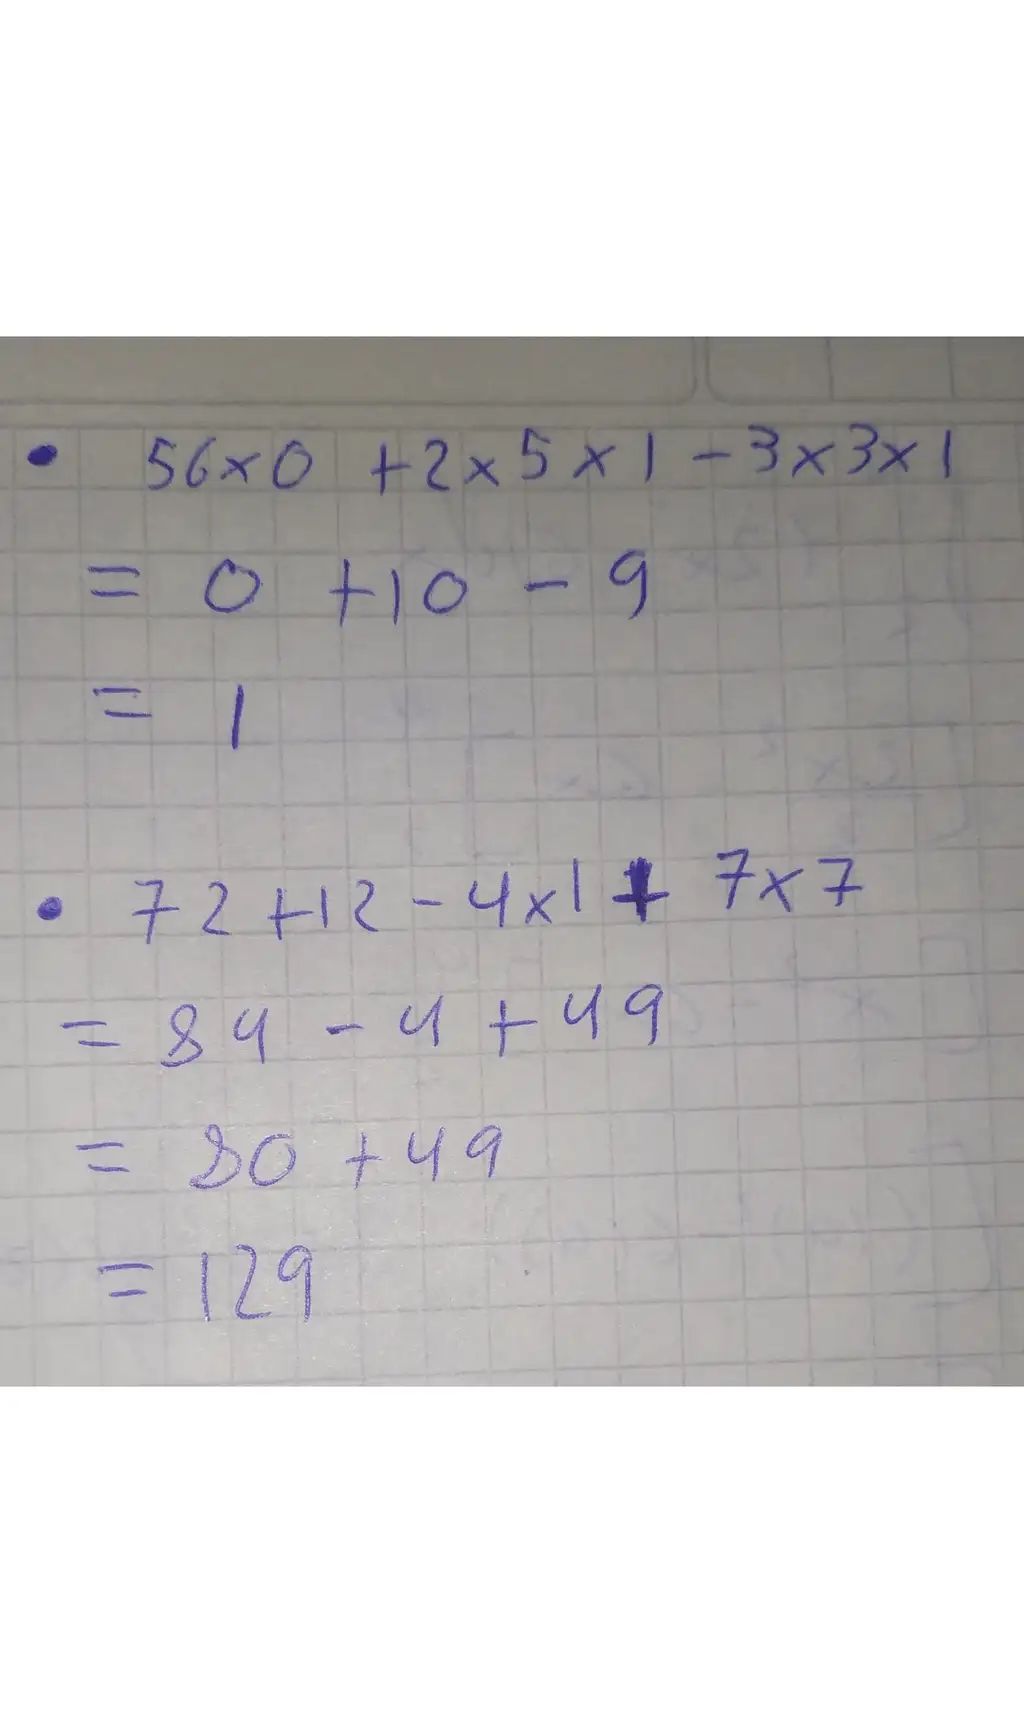 • 56×0 +2×5×1-3×3×1
= 0 +10 - 9
= 1
• 72+12-4×1+ 7×7
= 84 - 4 + 49
= 80 +49
= 129